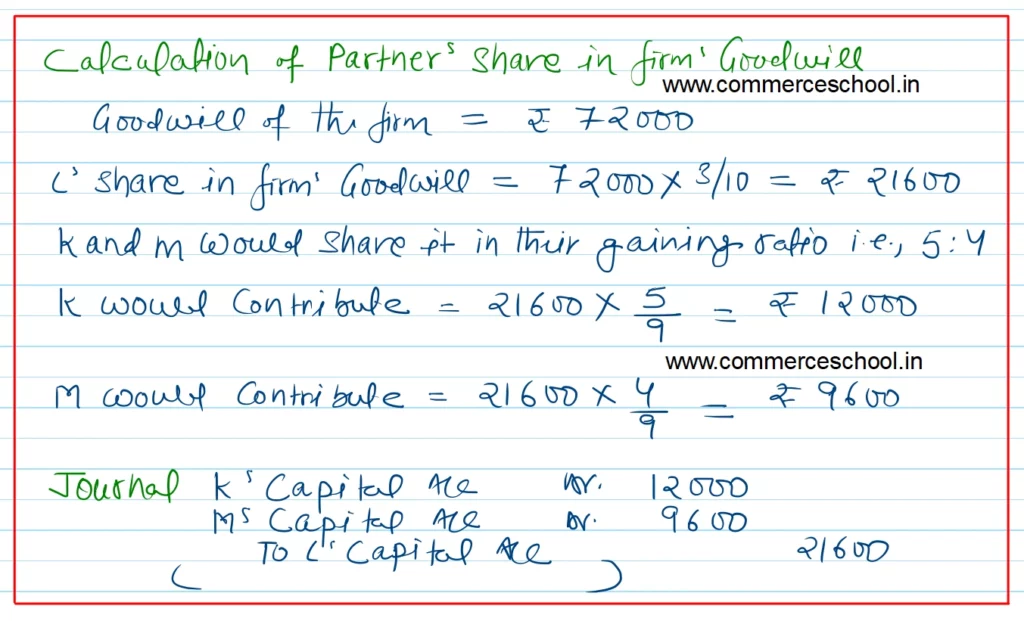 Calculation of Partner's Share in firm's Goodwill
www.commerceschool.in
Goodwill of the firm = ₹ 72000
L's Share in firm's Goodwill = 72000 × 3/10 = ₹ 21600
K and M would share it in their gaining ratio i.e., 5:4
K would Contribute = 21600 × 5/9 = ₹ 12000
www.commerceschool.in
M would Contribute = 21600 × 4/9 = ₹ 9600
Journal K's Capital A/c Dr. 12000
M's Capital A/c Dr. 9600
To L's Capital A/c 21600
( )